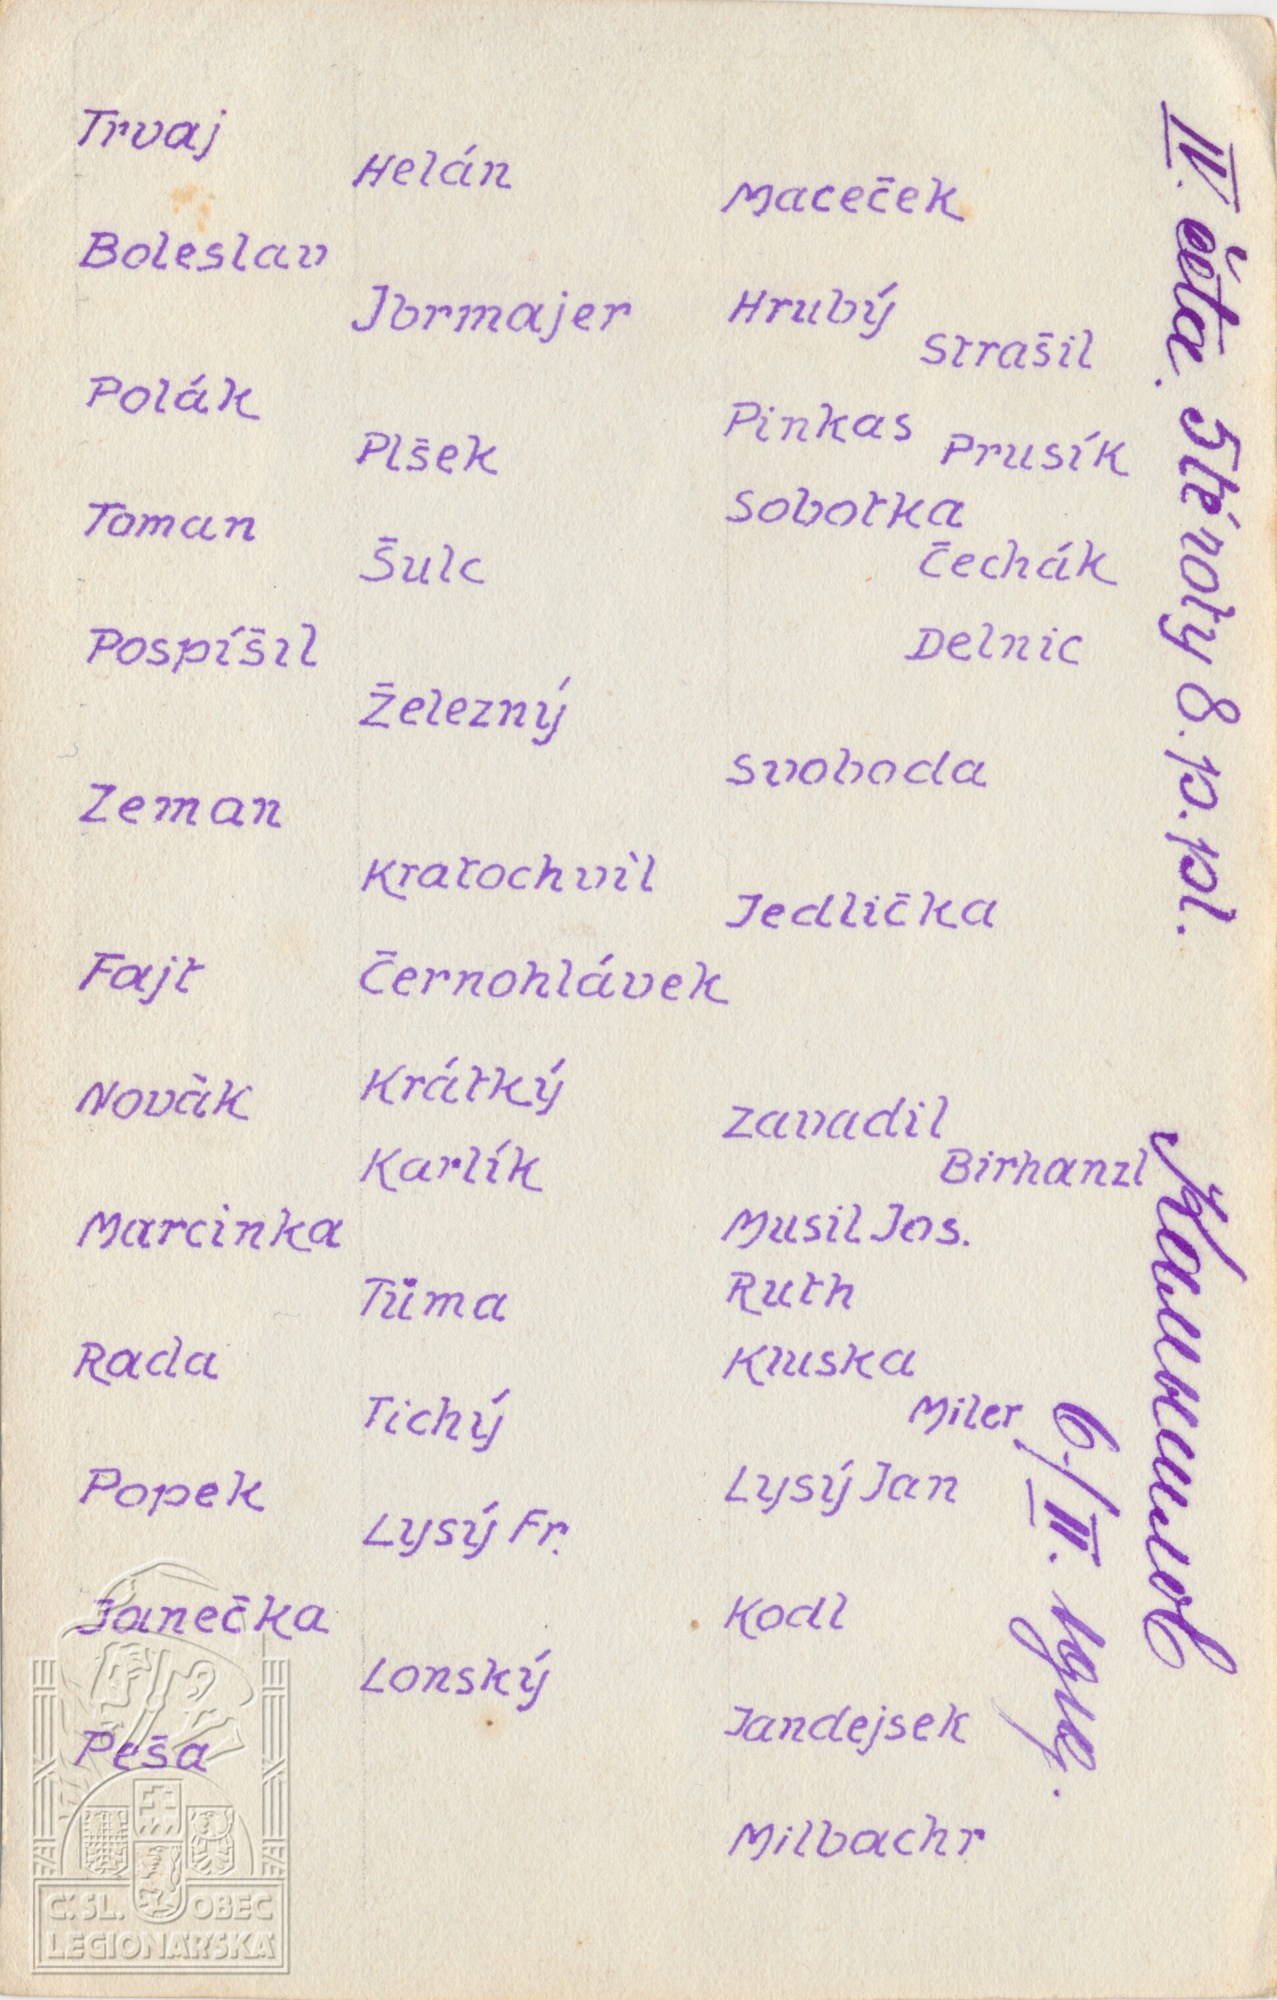 Trvaj
Boleslav
Polák
Toman
Pospíšil
Zeman
Fajt
Novák
Marcinka
Rada
Popek
Janečka
Peša
Helán
Jbrmajer
Plšek
Šulc
Železný
Kratochvìl
Černohlávek
Krátký
Karlík
Tůma
Tichý
Lysý Fr.
Lonský
Maceček
Hrubý
Strašil
Pinkas
Prusík
Sobotka
Čechák
Delnic
Svoboda
Jedlička
Zavadil
Birhanzl
Musil Jos.
Ruth
Kluska
Miler
Lysý Jan
Kodl
Jandejsek
Milbachr
IV. četa. 5té roty 8. p. pl.
6./III. 1919.
Č. SL. OBEC
LEGIONÁŘSKÁ